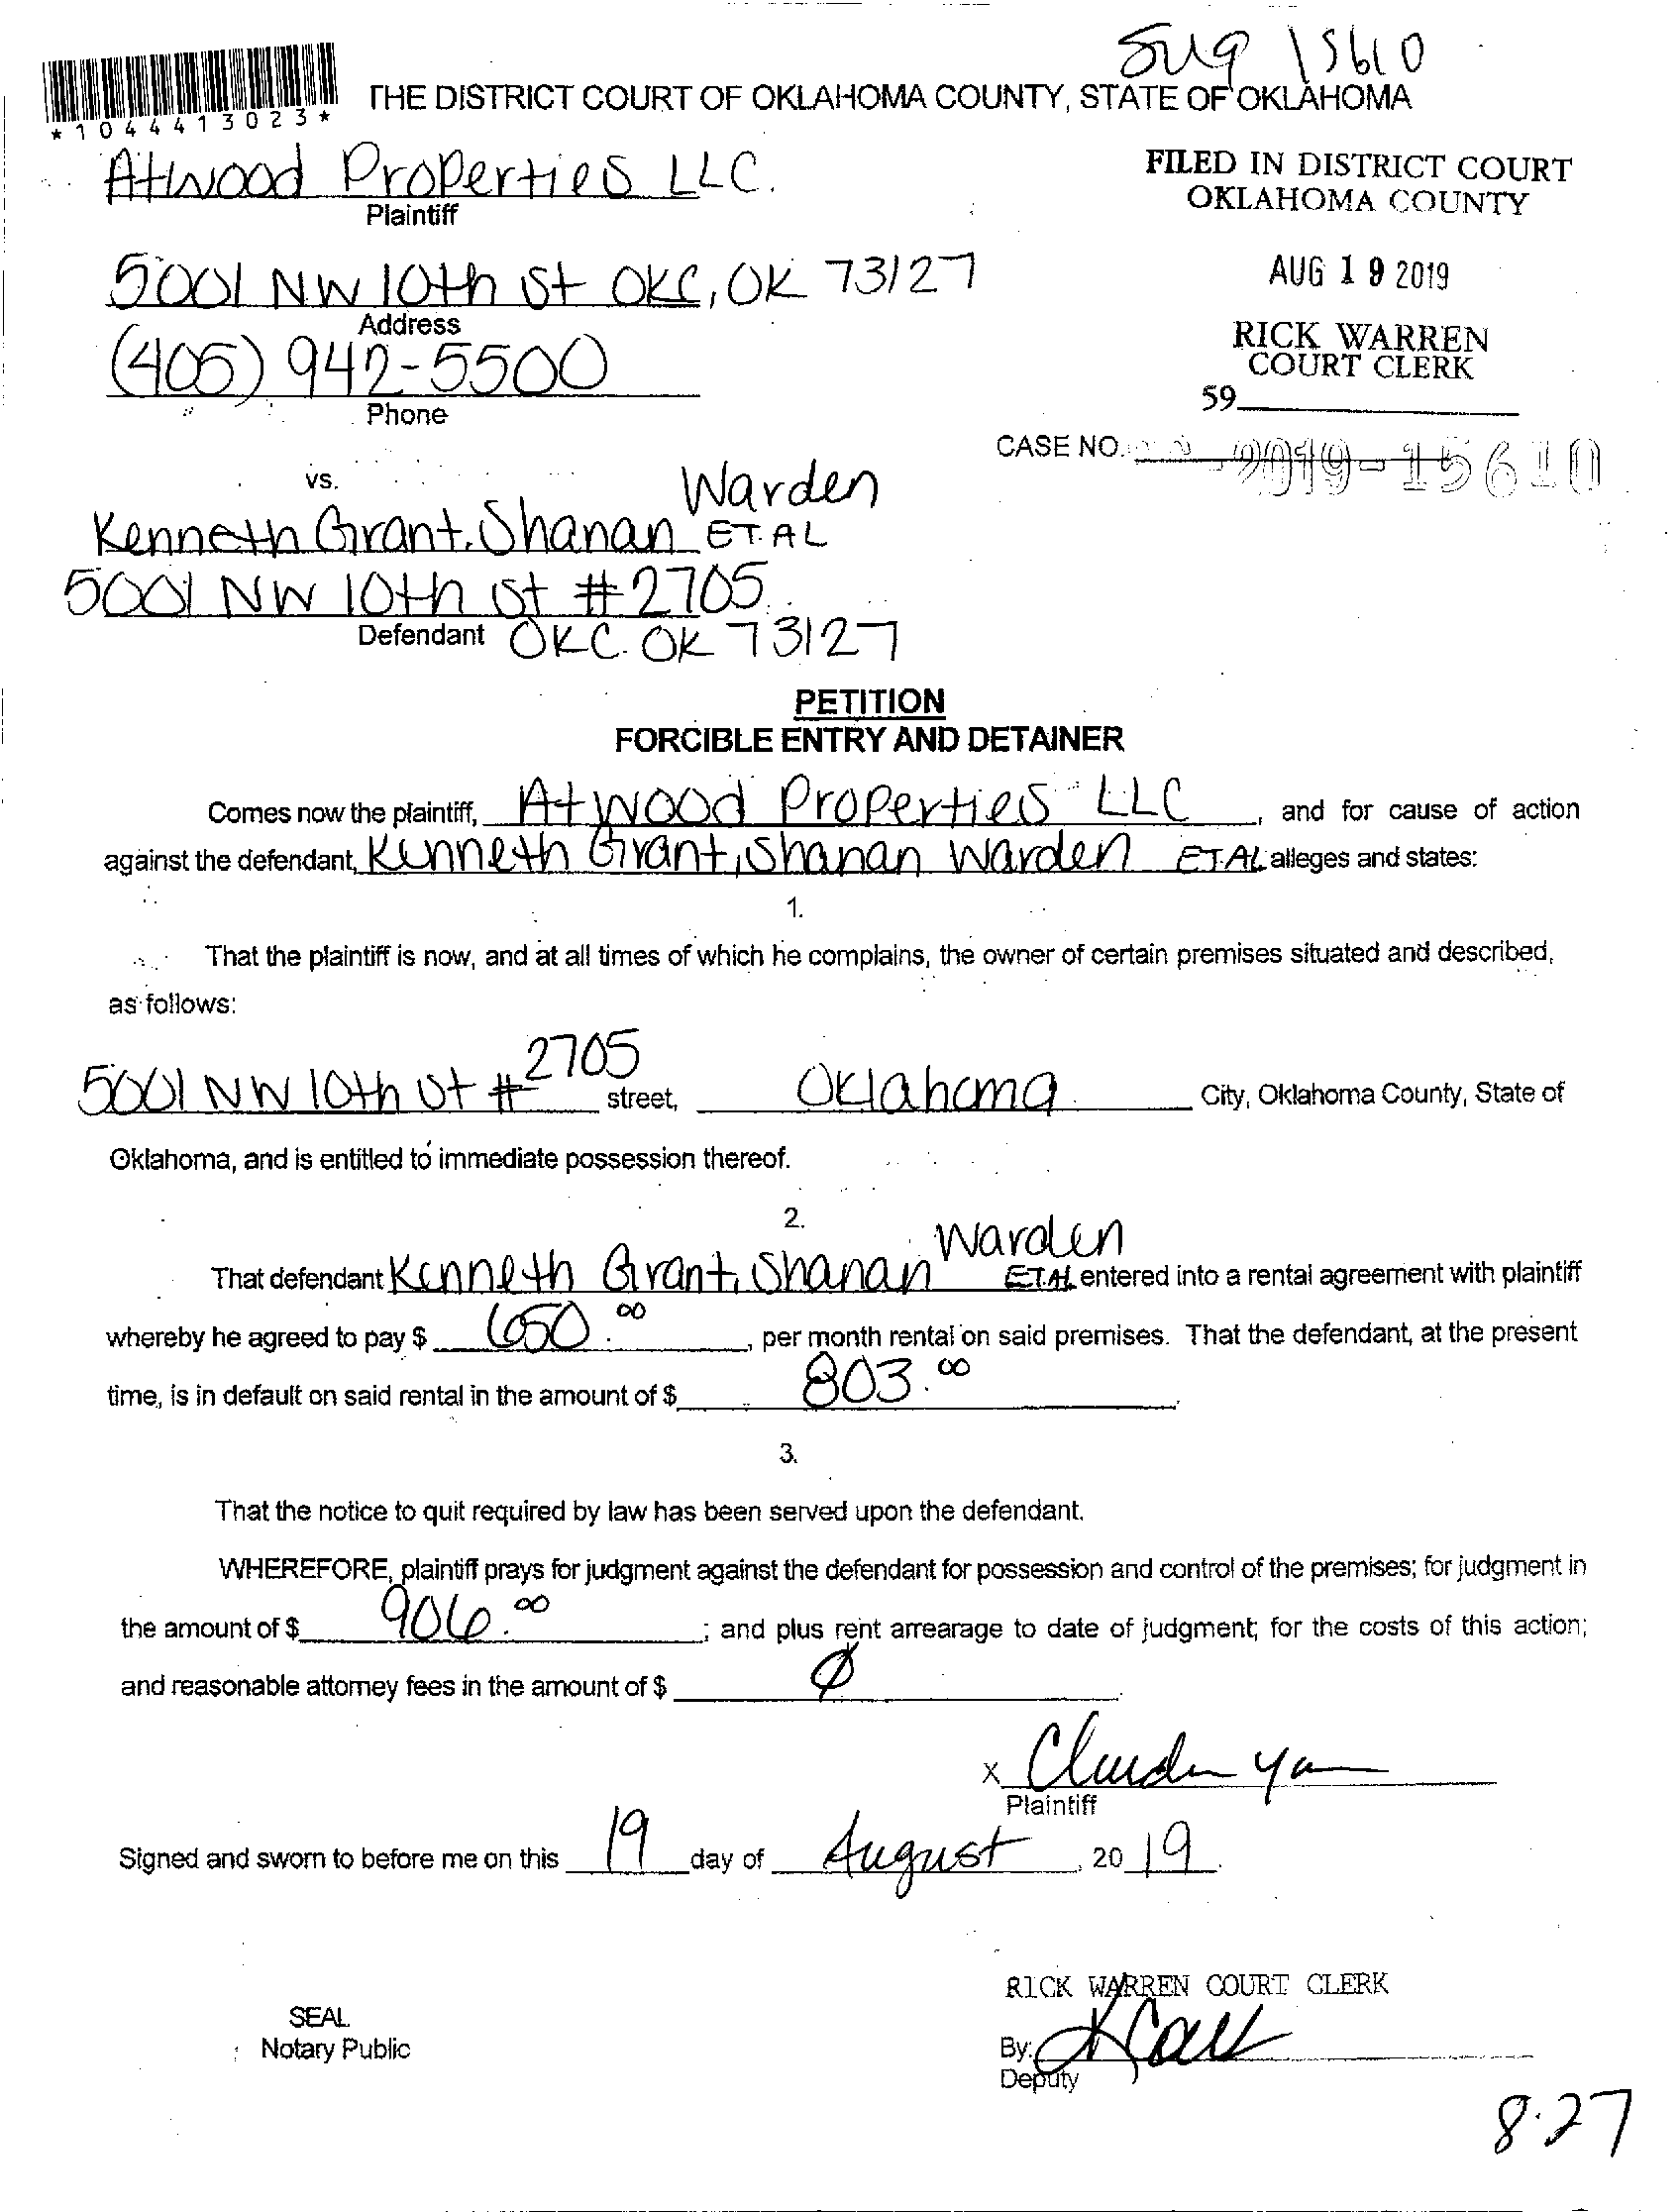 Su19 15610
*1044413023*
THE DISTRICT COURT OF OKLAHOMA COUNTY, STATE OF OKLAHOMA
Atwood Properties LLC.
Plaintiff
FILED IN DISTRICT COURT
OKLAHOMA COUNTY
5001 NW 10th St OKC, OK 73127
Address
AUG 19 2019
(405) 942-5500
Phone
RICK WARREN
COURT CLERK
59
CASE NO. -2019-15610
vs.
Warden
Kenneth Grant. Shanan ET.AL
5001 NW 10th St #2705
Defendant OKC. OK 73127
PETITION
FORCIBLE ENTRY AND DETAINER
Comes now the plaintiff, Atwood Properties LLC, and for cause of action
against the defendant, Kenneth Grant, Shanan Warden ET.AL alleges and states:
1.
That the plaintiff is now, and at all times of which he complains, the owner of certain premises situated and described,
as follows:
5001 NW 10th St #2705 street, Oklahoma City, Oklahoma County, State of
Oklahoma, and is entitled to immediate possession thereof.
2.
That defendant Kenneth Grant, Shanan Warden ET.AL entered into a rental agreement with plaintiff
whereby he agreed to pay $ 650.00, per month rental on said premises. That the defendant, at the present
time, is in default on said rental in the amount of $ 803.00
3.
That the notice to quit required by law has been served upon the defendant.
WHEREFORE, plaintiff prays for judgment against the defendant for possession and control of the premises; for judgment in
the amount of $ 906.00; and plus rent arrearage to date of judgment; for the costs of this action;
and reasonable attorney fees in the amount of $ Ø
X
Plaintiff
Signed and sworn to before me on this 19 day of August, 2019.
RICK WARREN COURT CLERK
SEAL
Notary Public
By:
Deputy
8.27